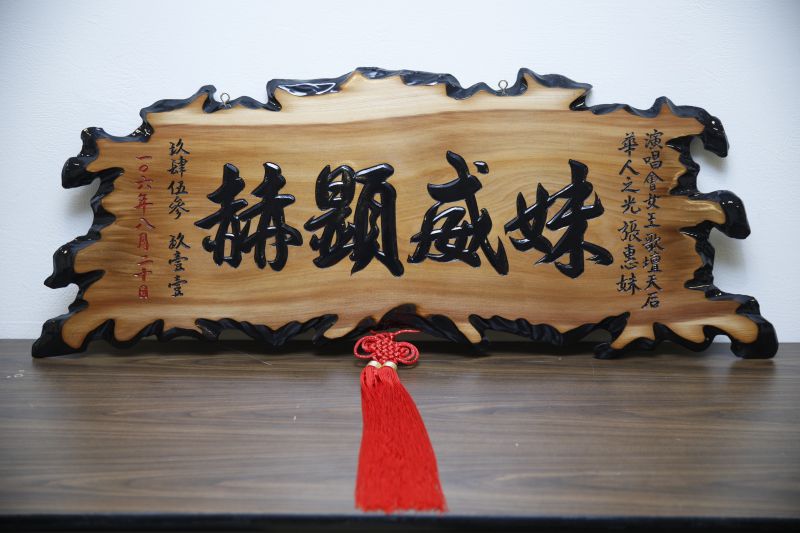 演唱會女王歌壇天后
華人之光張惠妹
妹威顯赫
玖肆伍參 玖壹壹
一0六年八月二十日